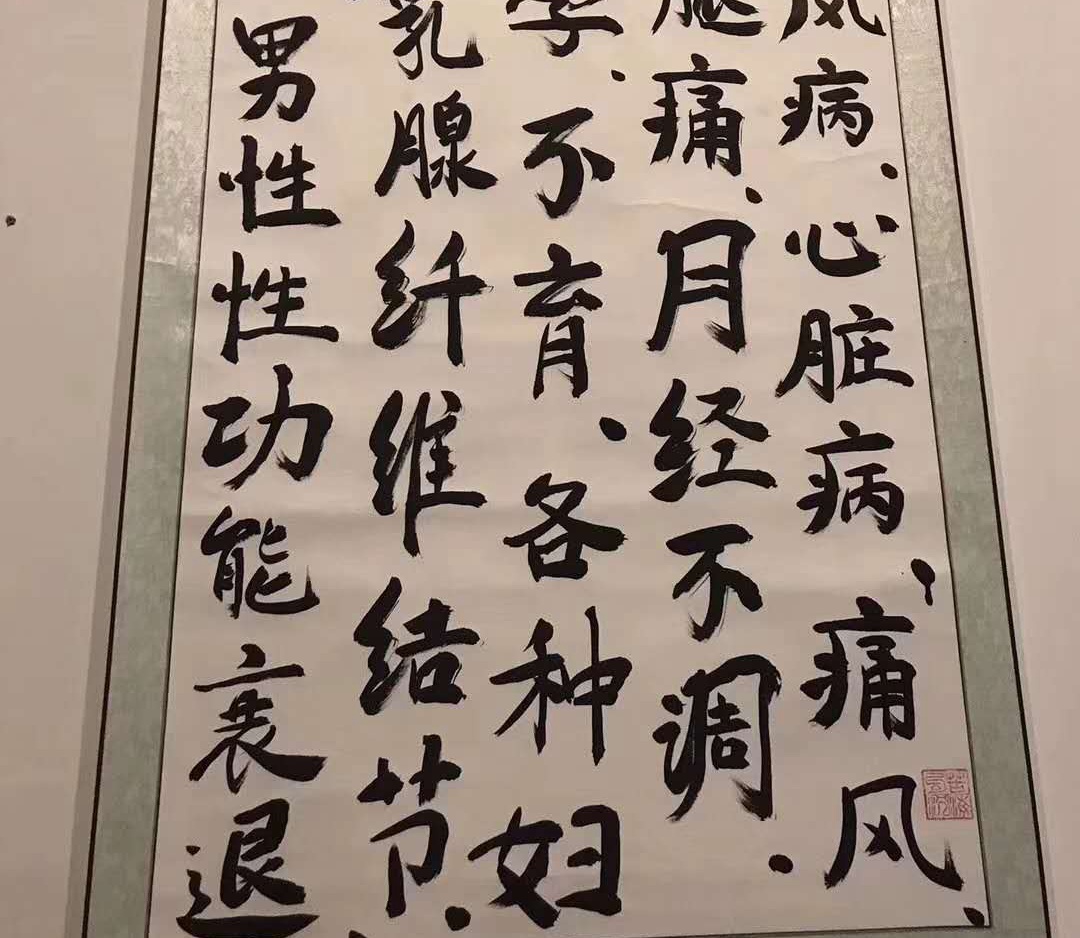 风病、心脏病、痛风、
腿痛、月经不调、
孕、不育、各种妇
乳腺纤维结节、
男性性功能衰退